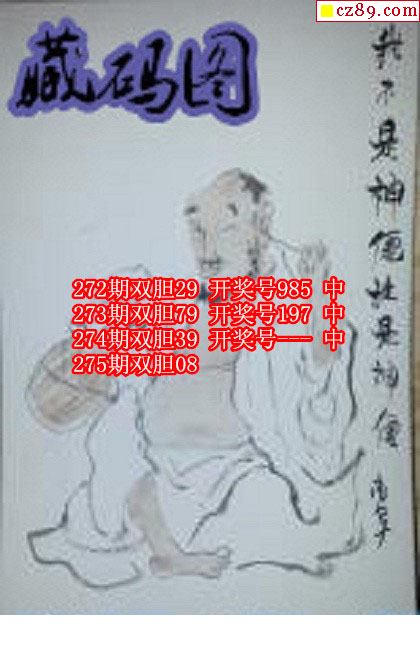 cz89.com
藏码图
我不是神仙谁是神仙
272期双胆29 开奖号985 中
273期双胆79 开奖号197 中
274期双胆39 开奖号--- 中
275期双胆08